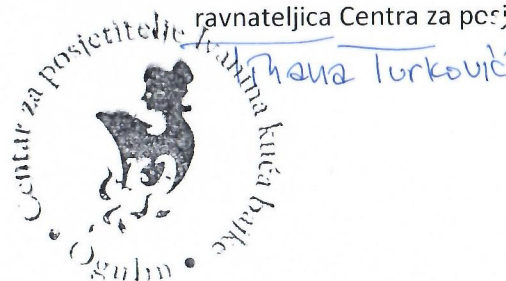 ravnateljica Centra za posj
Ankica Turković
Centar za posjetitelje Ivanina kuća bajke • Ogulin •